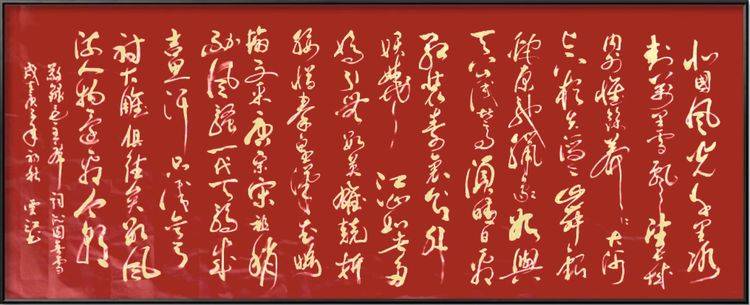 北国风光千里冰
封万里雪飘望长城
内外惟余莽莽大河
上下顿失滔滔山舞银
蛇原驰蜡象欲与
天公试比高须晴日看
红装素裹分外
妖娆江山如此多
娇引无数英雄竞折
腰惜秦皇汉武略
输文采唐宗宋祖稍
逊风骚一代天骄成
吉思汗只识弯弓
射大雕俱往矣数风
流人物还看今朝
敬录毛主席词沁园春雪
年初秋